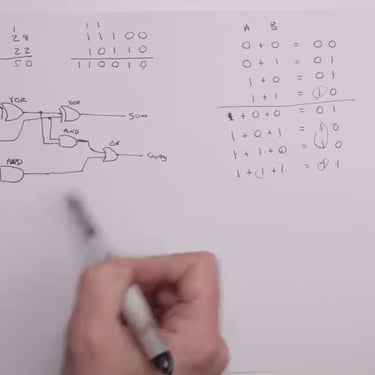 1
28
22
50
1 1
1 1 1 0 0
1 0 1 1 0
1 1 0 0 1 0
XOR
XOR
Sum
AND
OR
Carry
AND
A B
0 + 0 = 0 0
0 + 1 = 0 1
1 + 0 = 0 1
1 + 1 = 1 0
1 + 0 + 0 = 0 1
1 + 0 + 1 = 1 0
1 + 1 + 0 = 1 0
1 + 1 + 1 = 1 1